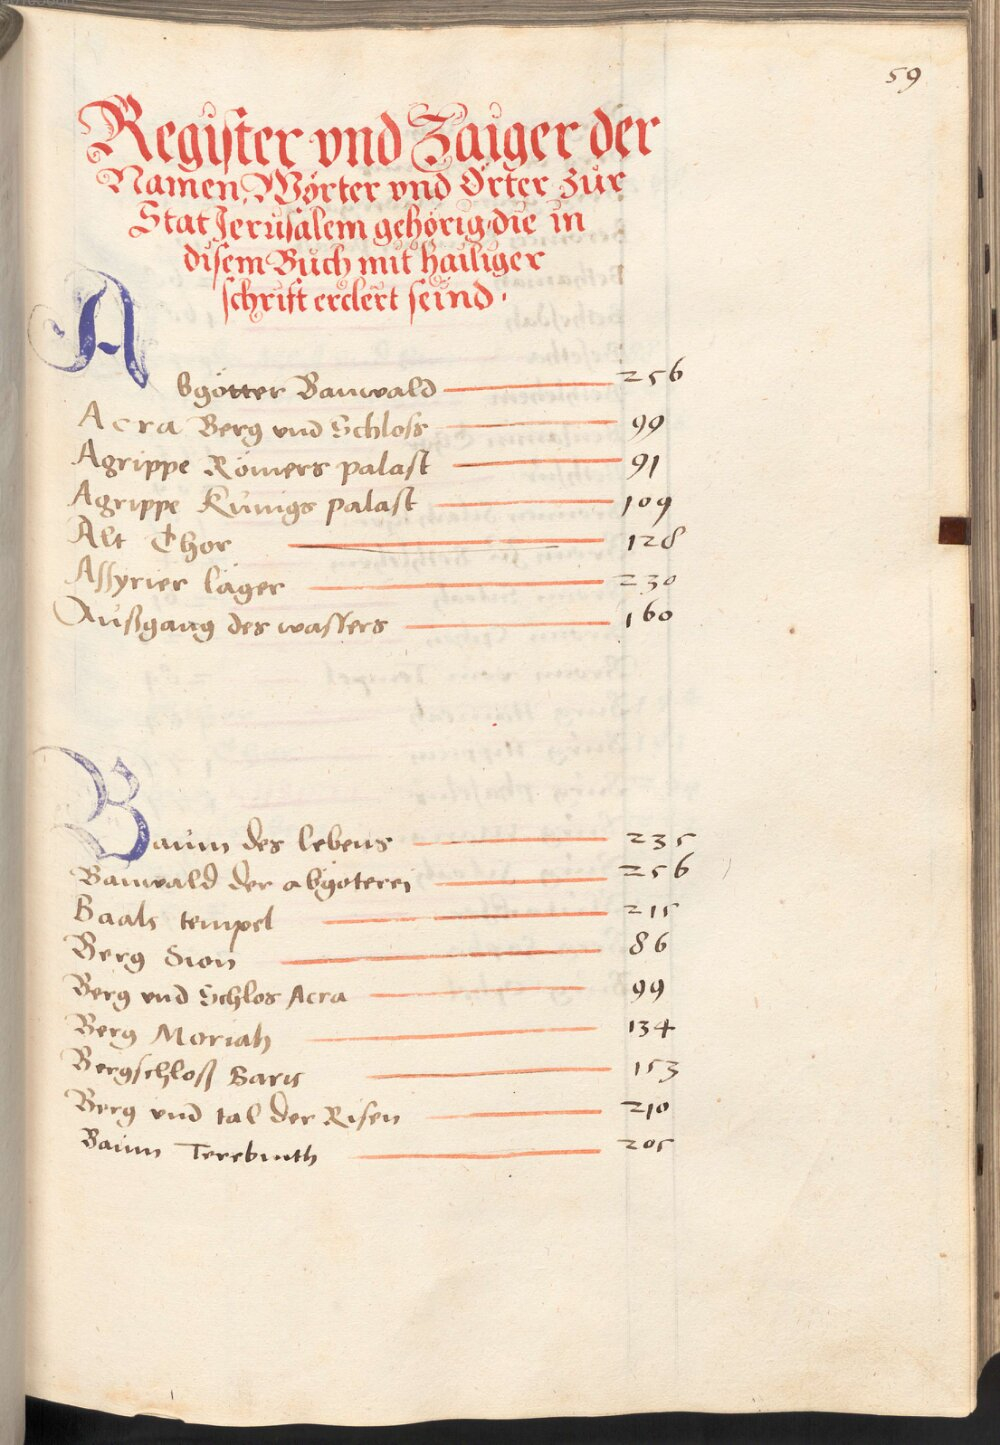 59
Register vnd Zaiger der
Namen, Wörter vnd Örter zur
Stat Jerusalem gehörig, die in
disem Buch mit hailiger
schrift erclert seind.
Abgötter Banwald 256
Acra Berg vnd Schloss 99
Agrippe Römers palast 91
Agrippe Kunigs palast 109
Alt Thor 128
Assyrier läger 230
Außgang des wassers 160
Baum des lebens 235
Banwald der abgöterei 256
Baals tempel 215
Berg Sion 86
Berg vnd Schlos Acra 99
Berg Moriah 134
Bergschloß Baris 153
Berg vnd tal der Risen 210
Baum Terebinth 205